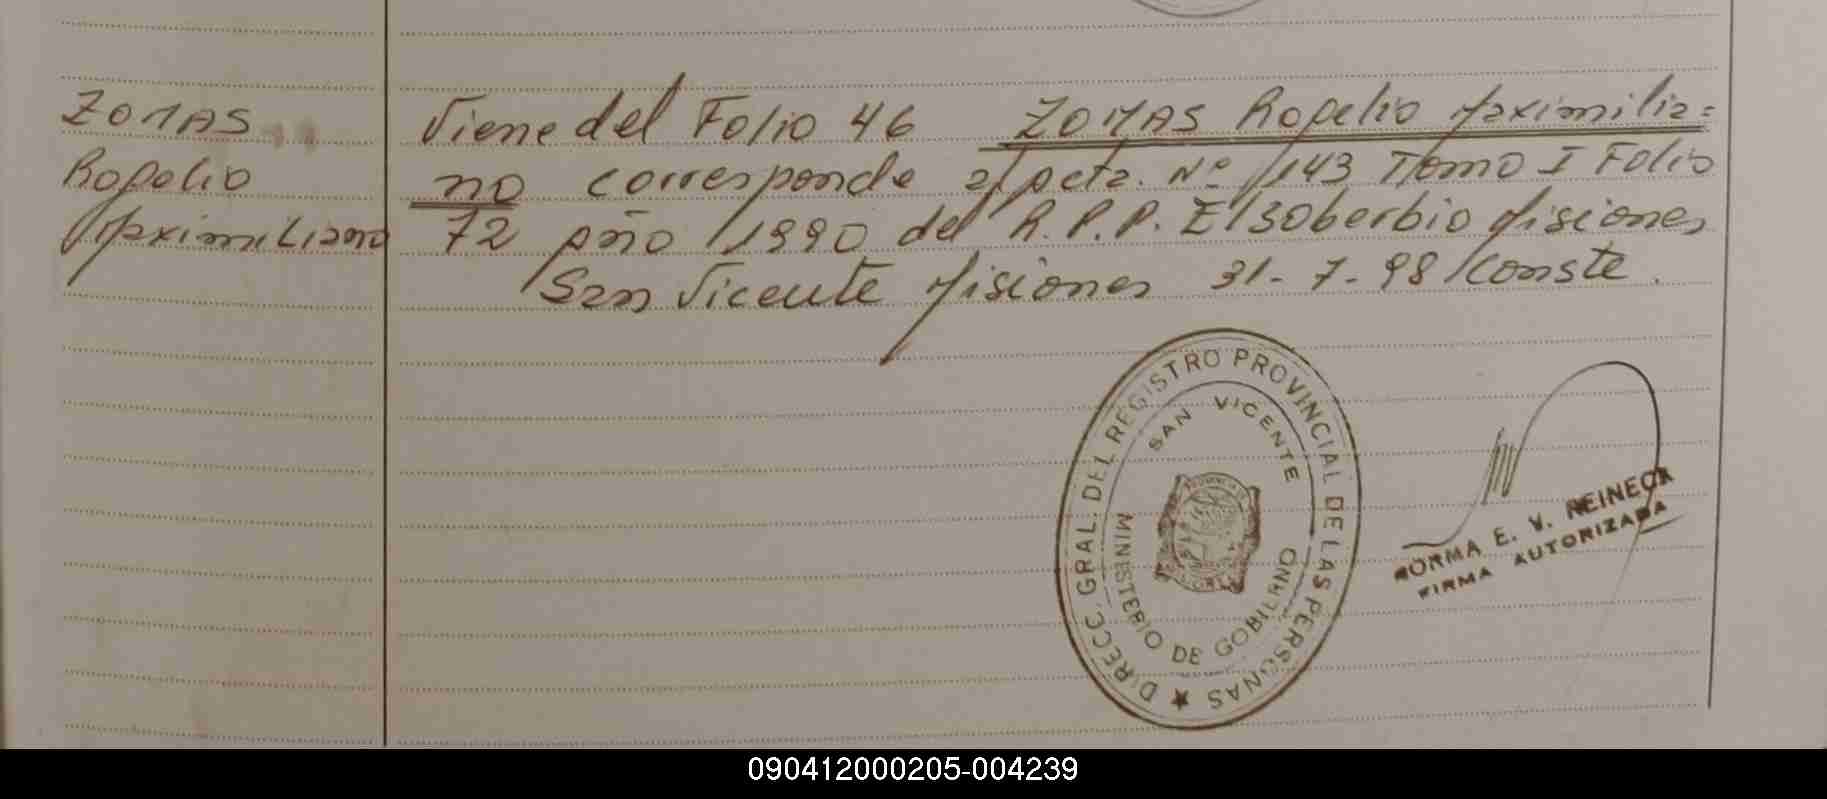 ZOMAS
Rogelio
Maximiliano
Viene del Folio 46 ZOMAS Rogelio Maximilia=
no corresponde a/acta. Nº 143 Tomo I Folio
72 año 1990 del R.P.P. El Soberbio Misiones
San Vicente Misiones 31-7-98 Conste.
DIRECC. GRAL. DEL REGISTRO PROVINCIAL DE LAS PERSONAS ★
SAN VICENTE
MINISTERIO DE GOBIERNO
NORMA E. V. REINECK
FIRMA AUTORIZADA
090412000205-004239